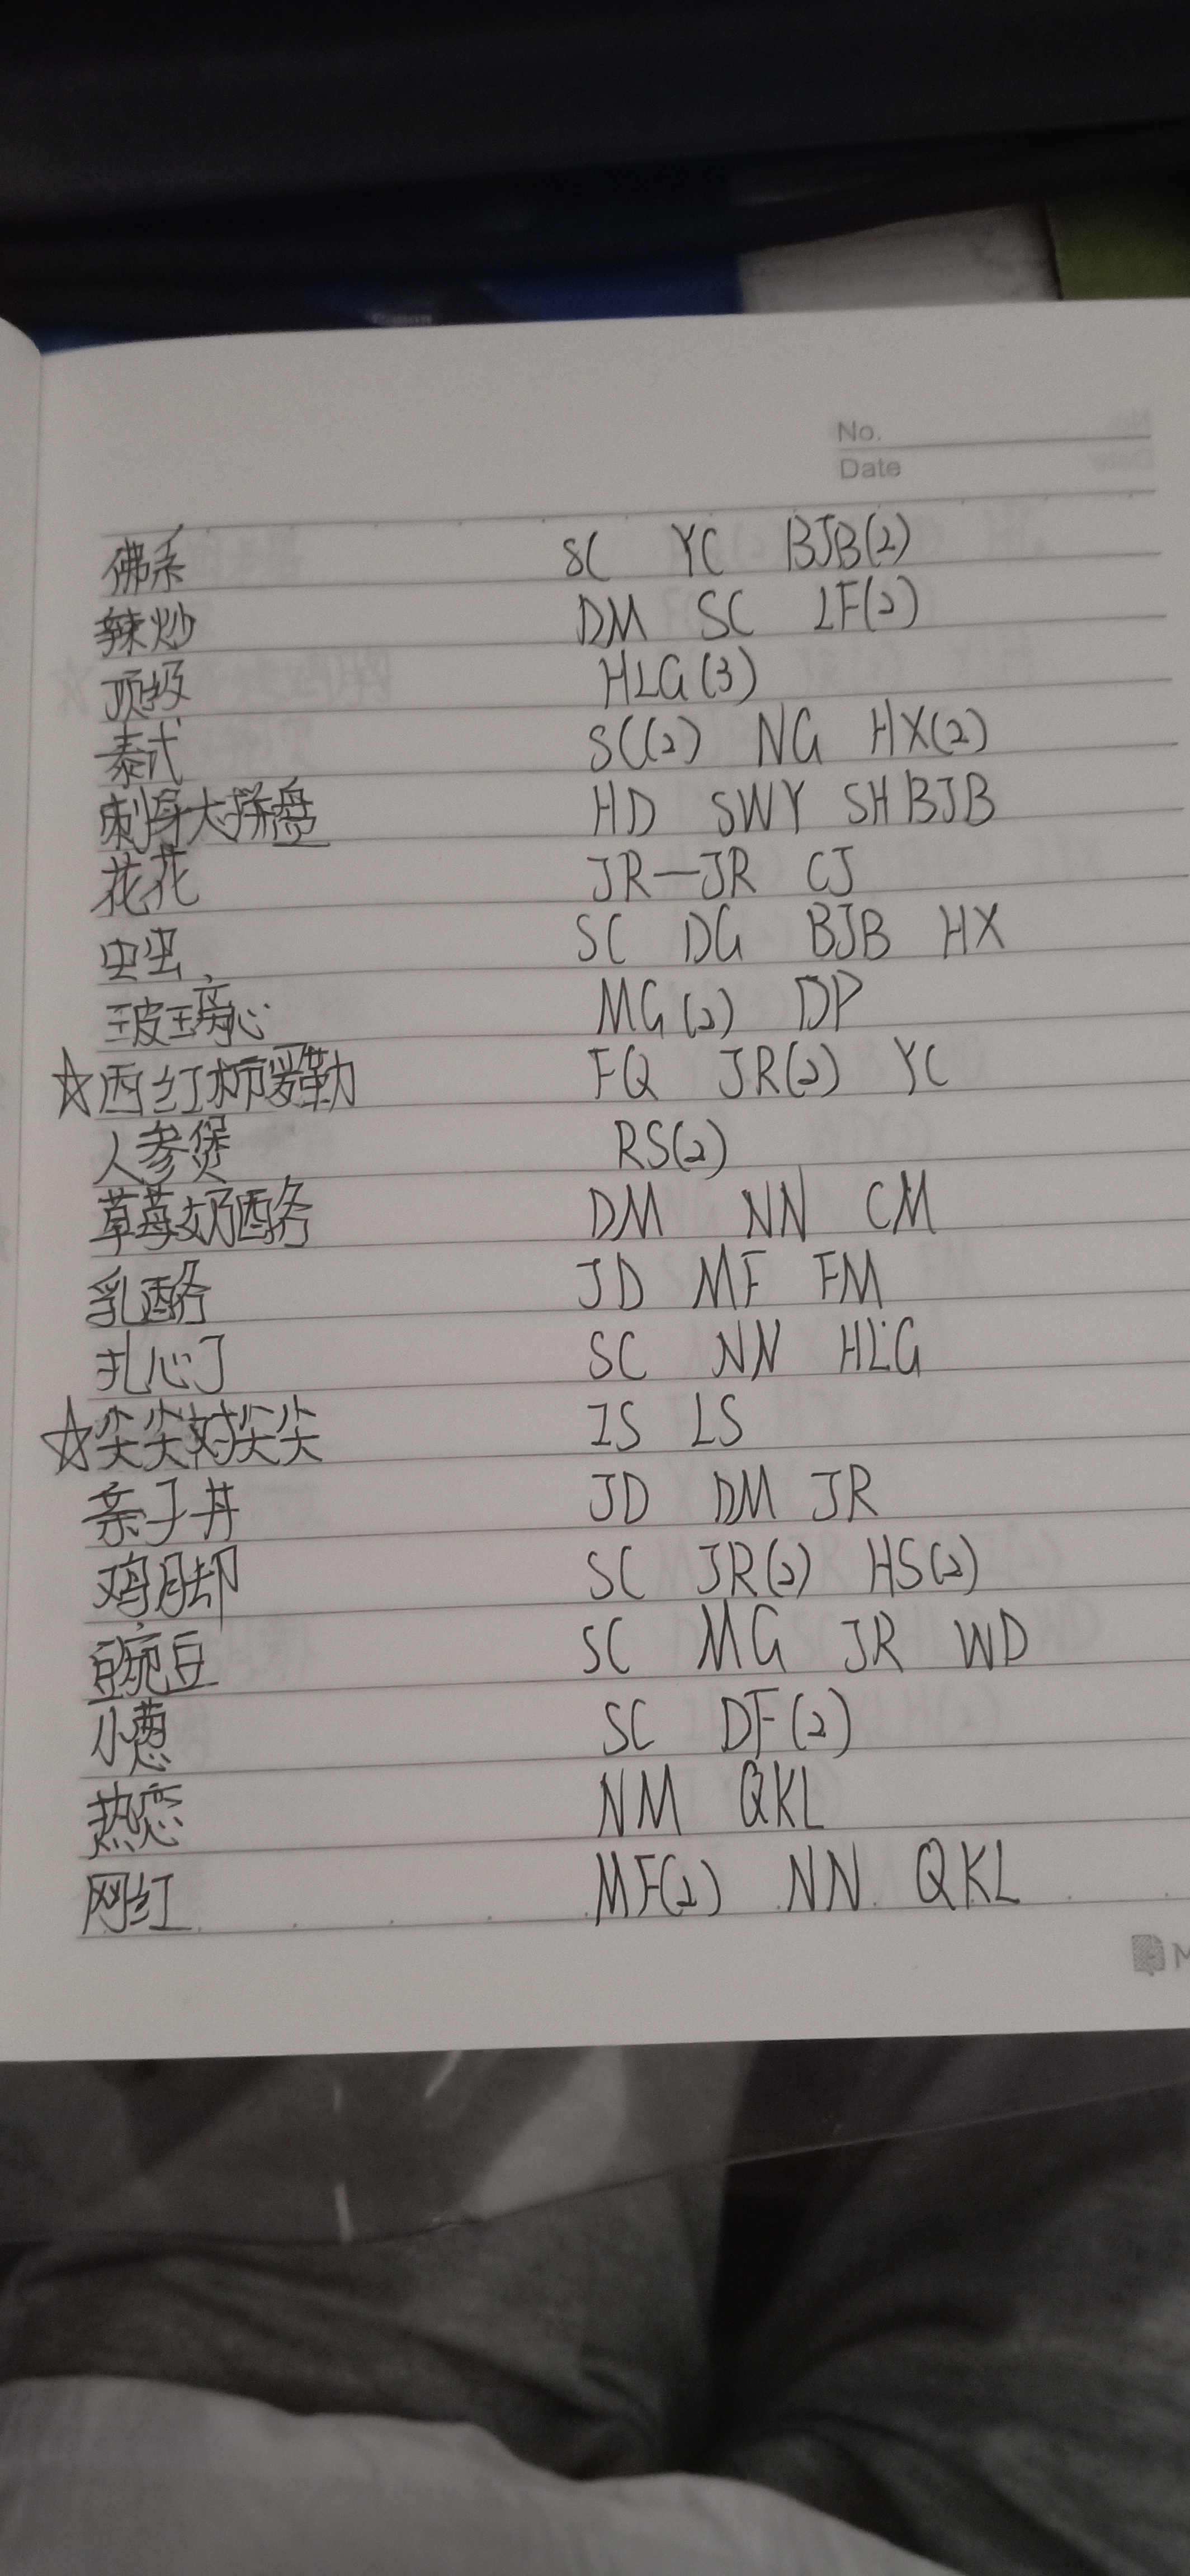 No.
Date
佛系 SC YC BJB(2)
辣炒 DM SC LF(2)
顶级 HLG(3)
泰式 SC(2) NG HX(2)
刺身大拼盘 HD SWY SH BJB
花花 JR—JR CJ
虫虫 SC DG BJB HX
玻璃心 MG(2) DP
☆西红柿爱勒 FQ JR(2) YC
人参煲 RS(2)
草莓奶酪 DM NN CM
乳酪 JD MF FM
扎心了 SC NN HLG
☆尖尖对尖尖 IS LS
亲子丼 JD DM JR
鸡脚 SC JR(2) HS(2)
豌豆 SC MG JR WD
小葱 SC DF(2)
热恋 NM QKL
网红 MF(2) NN QKL